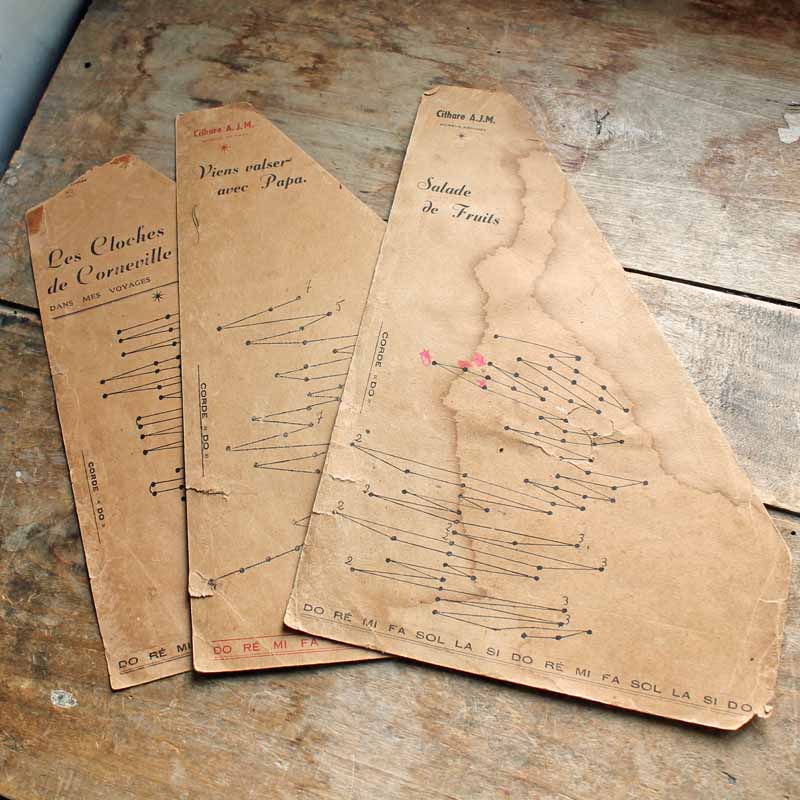 Les Cloches
de Corneville
DANS MES VOYAGES
CORDE « DO »
DO RÉ MI
Cithare A.J.M.
Viens valser
avec Papa.
7
5
7
CORDE « DO »
DO RÉ MI FA
Cithare A.J.M.
Salade
de Fruits
CORDE « DO »
2
2
2
2
3
2
3
3
3
DO RÉ MI FA SOL LA SI DO RÉ MI FA SOL LA SI DO